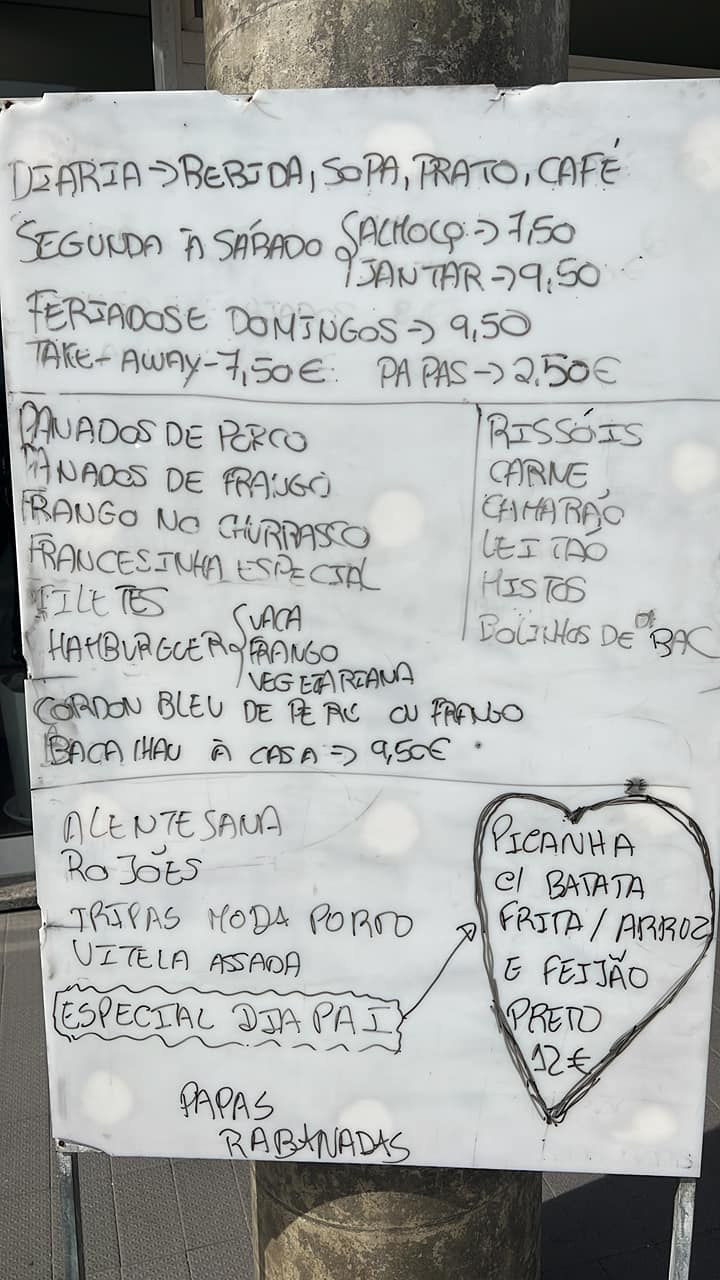 DIARIA → BEBIDA, SOPA, PRATO, CAFÉ
SEGUNDA À SÁBADO { ALMOÇO → 7,50
JANTAR → 9,50
FERIADOS E DOMINGOS → 9,50
TAKE-AWAY - 7,50€ PAPAS → 2,50€
PANADOS DE PORCO
PANADOS DE FRANGO
FRANGO NO CHURRASCO
FRANCESINHA ESPECIAL
FILETES
HAMBURGUER { VACA
FRANGO
VEGETARIANA
RISSÓIS
CARNE
CAMARÃO
LEITÃO
MISTOS
BOLINHOS DE BAC
CORDON BLEU DE PERU OU FRANGO
BACALHAU À CASA → 9,50€
ALENTESANA
ROJÕES
TRIPAS MODA PORTO
VITELA ASSADA
ESPECIAL DIA PAI
PICANHA
C/ BATATA
FRITA / ARROZ
E FEIJÃO
PRETO
12€
PAPAS
RABANADAS